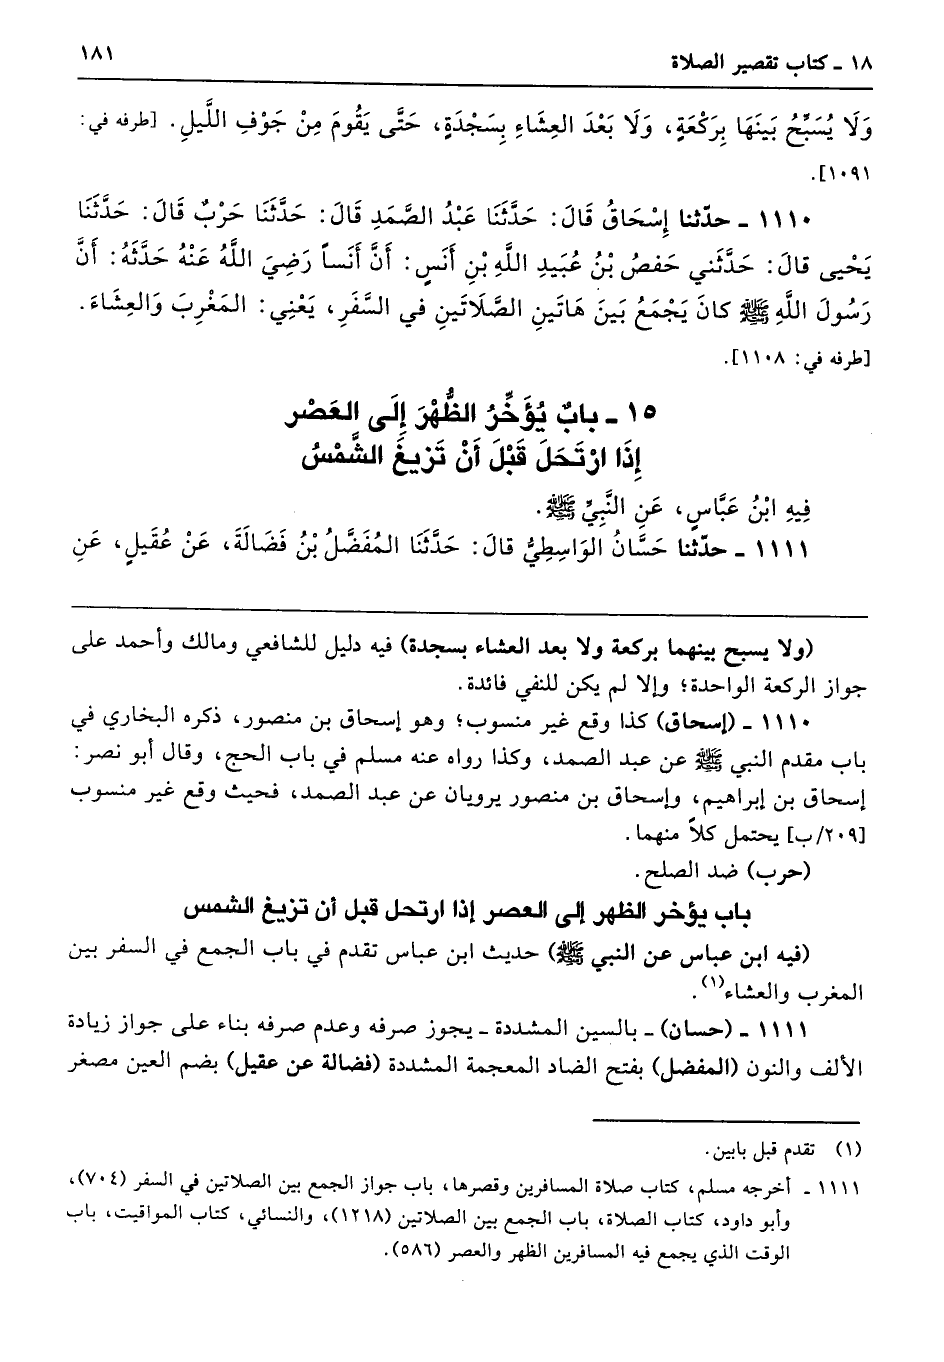 ١٨ ـ كتاب تقصير الصلاة
١٨١
وَلَا يُسَبِّحُ بَينَهَا بِرَكْعَةٍ، وَلَا بَعْدَ العِشَاءِ بِسَجْدَةٍ، حَتَّى يَقُومَ مِنْ جَوْفِ اللَّيلِ. [طرفه في:
١٠٩١].
١١١٠ ـ حدّثنا إِسْحَاقُ قَالَ: حَدَّثَنَا عَبْدُ الصَّمَدِ قَالَ: حَدَّثَنَا حَرْبٌ قَالَ: حَدَّثَنَا
يَحْيى قالَ: حَدَّثَني حَفصُ بْنُ عُبَيدِ اللَّهِ بْنِ أَنَسٍ: أَنَّ أَنَساً رَضِيَ اللَّهُ عَنْهُ حَدَّثَهُ: أَنَّ
رَسُولَ اللَّهِ ﷺ كانَ يَجْمَعُ بَينَ هَاتَينِ الصَّلَاتَينِ في السَّفَرِ، يَعْنِي: المَغْرِبَ وَالعِشَاءَ.
[طرفه في: ١١٠٨].
١٥ ـ بابٌ يُؤَخِّرُ الظُّهْرَ إِلَى العَصْرِ
إِذَا ارْتَحَلَ قَبْلَ أَنْ تَزِيغَ الشَّمْسُ
فِيهِ ابْنُ عَبَّاسٍ، عَنِ النَّبِيِّ ﷺ.
١١١١ ـ حدّثنا حَسَّانُ الوَاسِطِيُّ قالَ: حَدَّثَنَا المُفَضَّلُ بْنُ فَضَالَةَ، عَنْ عُقَيلٍ، عَنِ
(ولا يسبح بينهما بركعة ولا بعد العشاء بسجدة) فيه دليل للشافعي ومالك وأحمد على
جواز الركعة الواحدة؛ وإلا لم يكن للنفي فائدة.
١١١٠ ـ (إسحاق) كذا وقع غير منسوب؛ وهو إسحاق بن منصور، ذكره البخاري في
باب مقدم النبي ﷺ عن عبد الصمد، وكذا رواه عنه مسلم في باب الحج، وقال أبو نصر:
إسحاق بن إبراهيم، وإسحاق بن منصور يرويان عن عبد الصمد، فحيث وقع غير منسوب
[٢٠٩/ب] يحتمل كلاً منهما.
(حرب) ضد الصلح.
باب يؤخر الظهر إلى العصر إذا ارتحل قبل أن تزيغ الشمس
(فيه ابن عباس عن النبي ﷺ) حديث ابن عباس تقدم في باب الجمع في السفر بين
المغرب والعشاء(١).
١١١١ ـ (حسان) ـ بالسين المشددة ـ يجوز صرفه وعدم صرفه بناء على جواز زيادة
الألف والنون (المفضل) بفتح الضاد المعجمة المشددة (فضالة عن عقيل) بضم العين مصغر
(١) تقدم قبل بابين.
١١١١ ـ أخرجه مسلم، كتاب صلاة المسافرين وقصرها، باب جواز الجمع بين الصلاتين في السفر (٧٠٤)،
وأبو داود، كتاب الصلاة، باب الجمع بين الصلاتين (١٢١٨)، والنسائي، كتاب المواقيت، باب
الوقت الذي يجمع فيه المسافرين الظهر والعصر (٥٨٦).